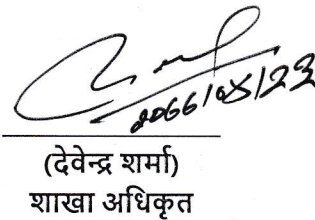 2066/05/23
(देवेन्द्र शर्मा)
शाखा अधिकृत